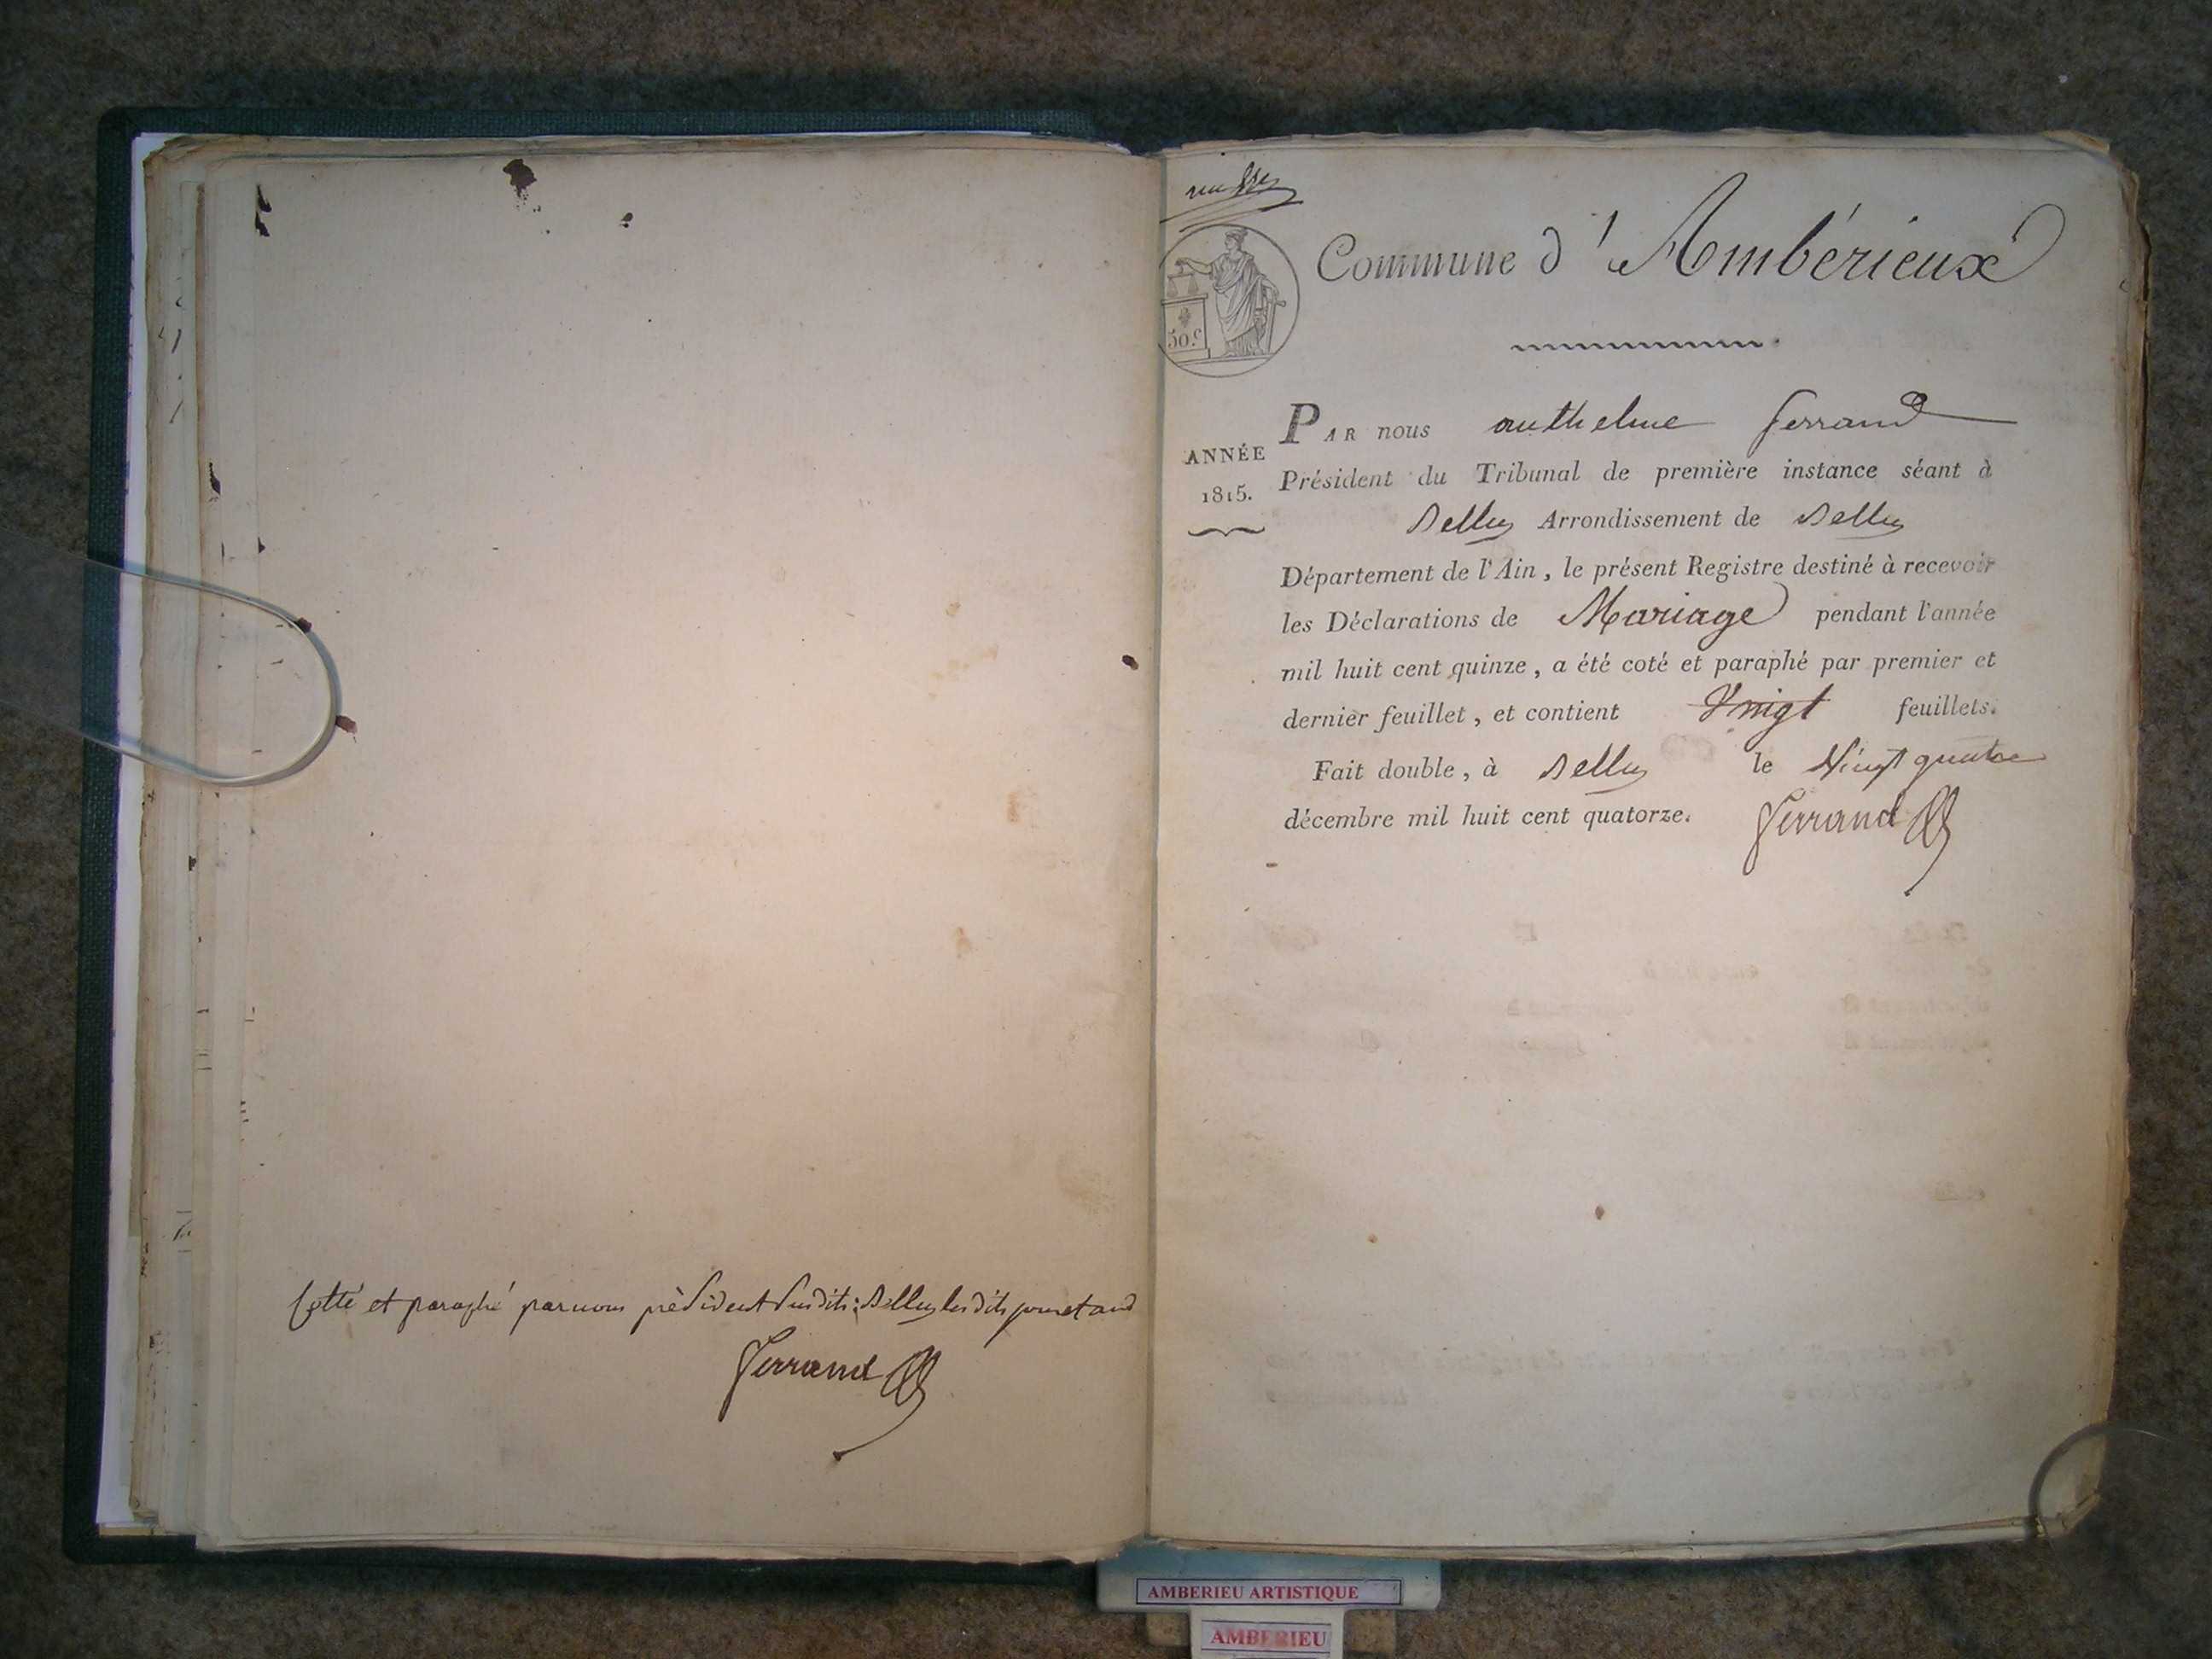 Cotté et paraphé par nous président susdit; Belley les dits jour et and
Ferrand
Commune d'Ambérieux
50.c
ANNÉE
1815.
PAR nous anthelme ferrand
Président du Tribunal de première instance séant à
Belley Arrondissement de Belley
Département de l'Ain, le présent Registre destiné à recevoir
les Déclarations de Mariage pendant l'année
mil huit cent quinze, a été coté et paraphé par premier et
dernier feuillet, et contient Vingt feuillets.
Fait double, à Belley le Vingt quatre
décembre mil huit cent quatorze.
Ferrand
AMBERIEU ARTISTIQUE
AMBERIEU